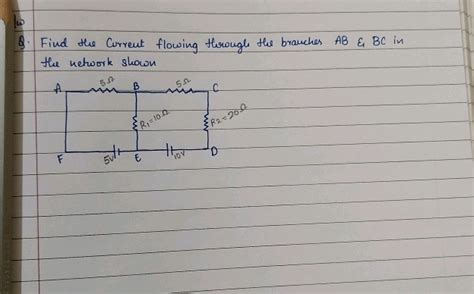 Q. Find the Current flowing through the branches AB & BC in
the network shown
A 5Ω B 5Ω C
R1=10Ω R2=20Ω
F 5V E 10V D